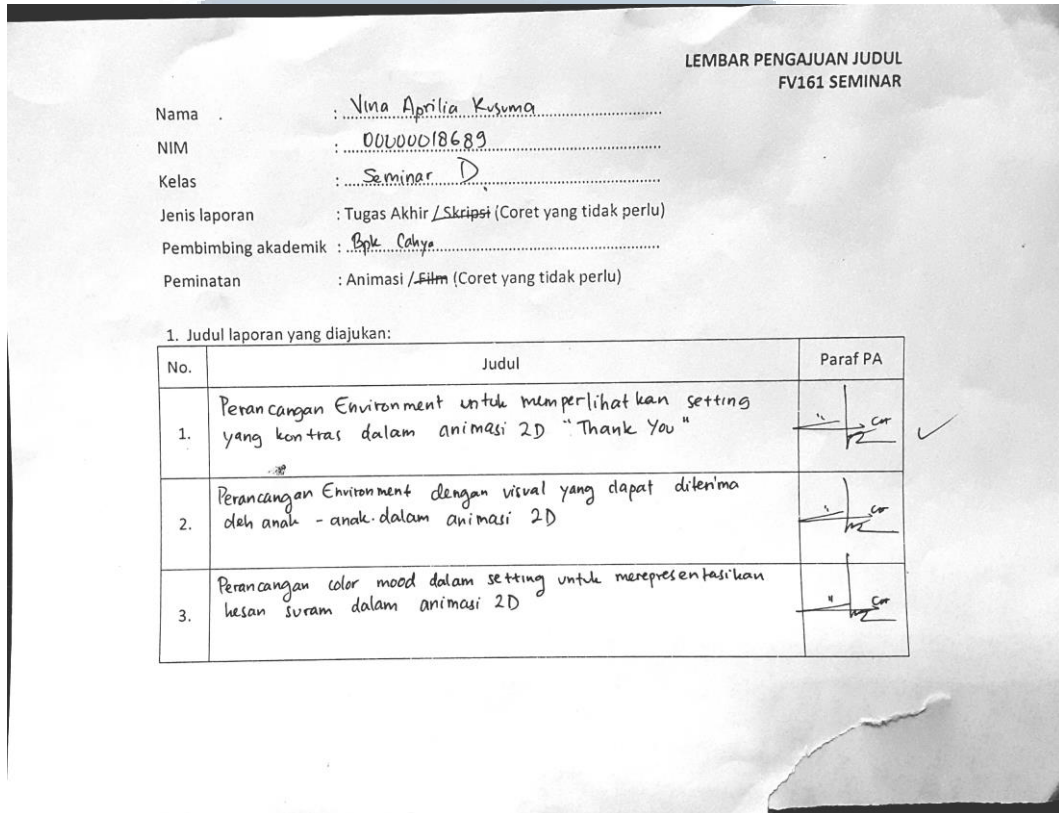 LEMBAR PENGAJUAN JUDUL
FV161 SEMINAR
Nama : Vina Aprilia Kusuma
NIM : 00000018689
Kelas : Seminar D
Jenis laporan : Tugas Akhir / Skripsi (Coret yang tidak perlu)
Pembimbing akademik : Bpk Cahya
Peminatan : Animasi / Film (Coret yang tidak perlu)
1. Judul laporan yang diajukan:
No. Judul Paraf PA
1. Perancangan Environment untuk memperlihatkan setting
yang kontras dalam animasi 2D "Thank You"
2. Perancangan Environment dengan visual yang dapat diterima
oleh anak - anak dalam animasi 2D
3. Perancangan color mood dalam setting untuk merepresentasikan
kesan suram dalam animasi 2D